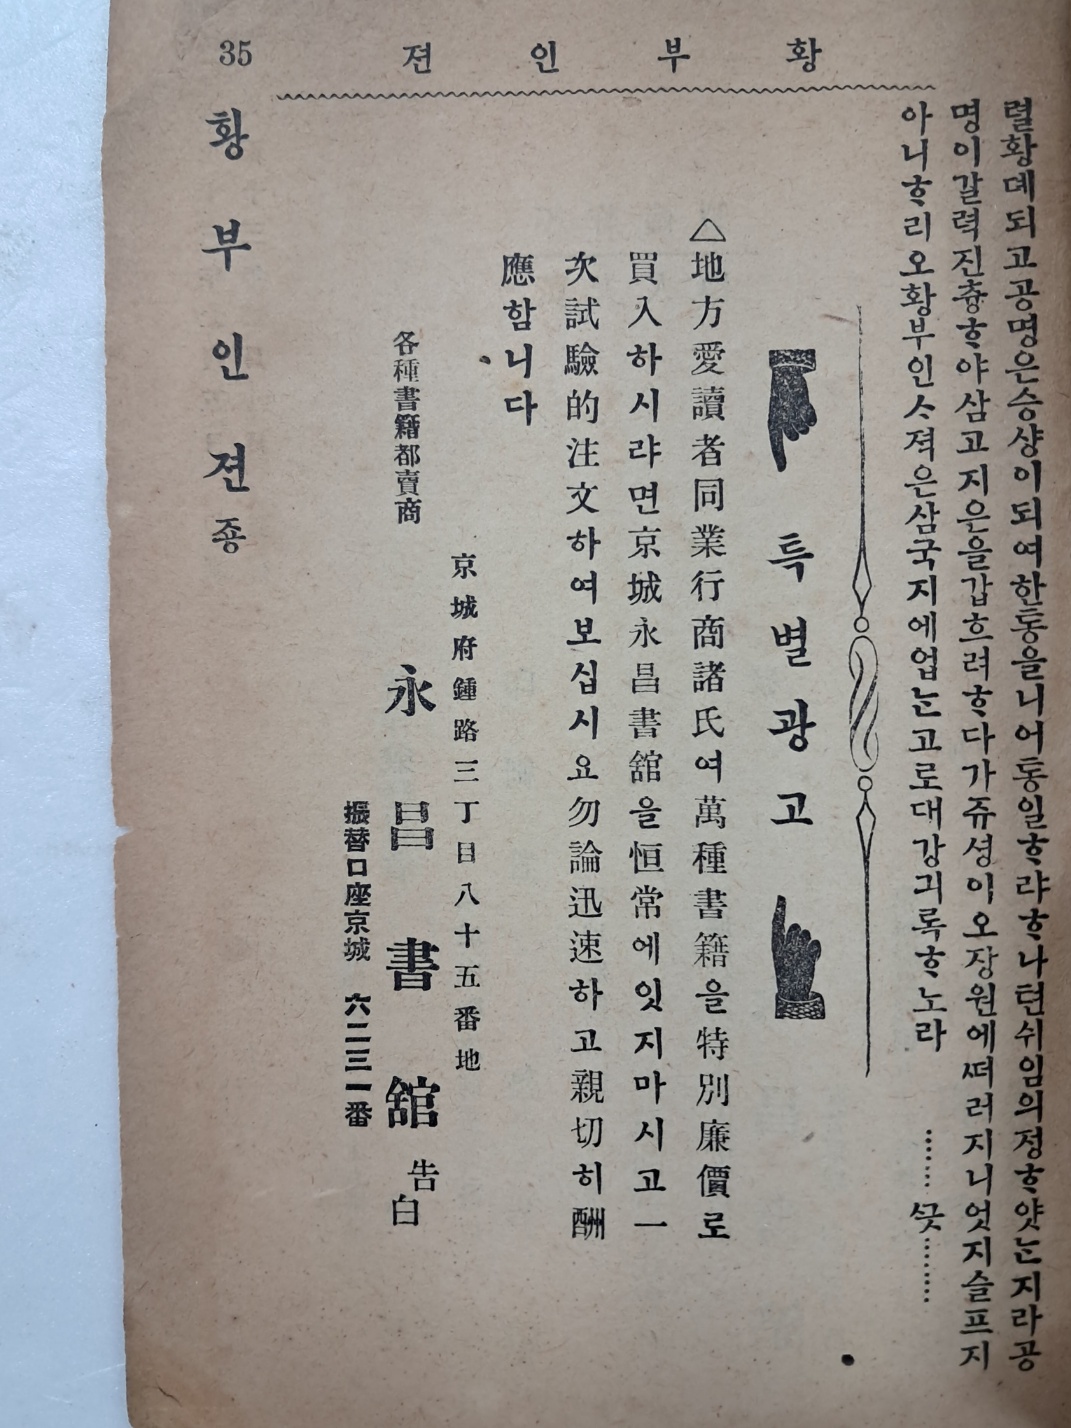 황부인젼
35
렬황뎨되고공명은승샹이되여한통을니어통일ᄒᆞ랴ᄒᆞ나텬쉬임의졍ᄒᆞ얏ᄂᆞᆫ지라공
명이갈력진츙ᄒᆞ야삼고지은을갑흐려ᄒᆞ다가쥬셩이오장원에ᄯᅥ러지니엇지슬프지
아니ᄒᆞ리오황부인ᄉᆞ젹은삼국지에업ᄂᆞᆫ고로대강긔록ᄒᆞ노라 ……ᄭᅳᆺ………
특별광고
△地方愛讀者同業行商諸氏여萬種書籍을特別廉價로
買入하시랴면京城永昌書舘을恒常에잇지마시고一
次試驗的注文하여보십시요勿論迅速하고親切히酬
應함니다
京城府鍾路三丁目八十五番地
各種書籍都賣商 永昌書舘 告白
振替口座京城 六二三一番
황부인젼죵